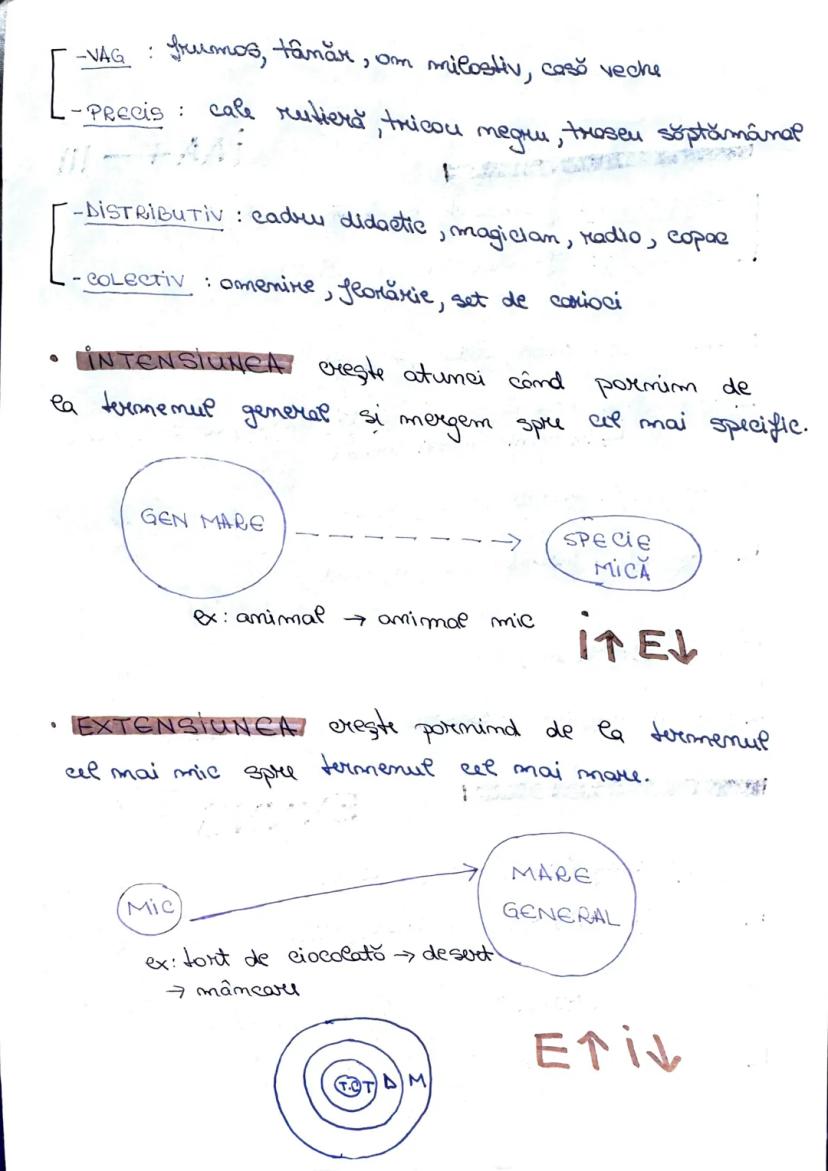 -VAG : frumos, tânăr, om milostiv, casă veche
-PRECIS : cale rutieră, tricou negru, traseu săptămânal
-DISTRIBUTIV : cadru didactic, magician, radio, copac
-COLECTIV : omenire, florărie, set de carioci
• INTENSIUNEA crește atunci când pornim de
la termenul general și mergem spre cel mai specific.
GEN MARE
SPECIE
MICĂ
ex: animal → animal mic
i↑ E↓
• EXTENSIUNEA crește pornind de la termenul
cel mai mic spre termenul cel mai mare.
MARE
GENERAL
MIC
ex: tort de ciocolată → desert
→ mâncare
E↑ i↓
T.C T D M